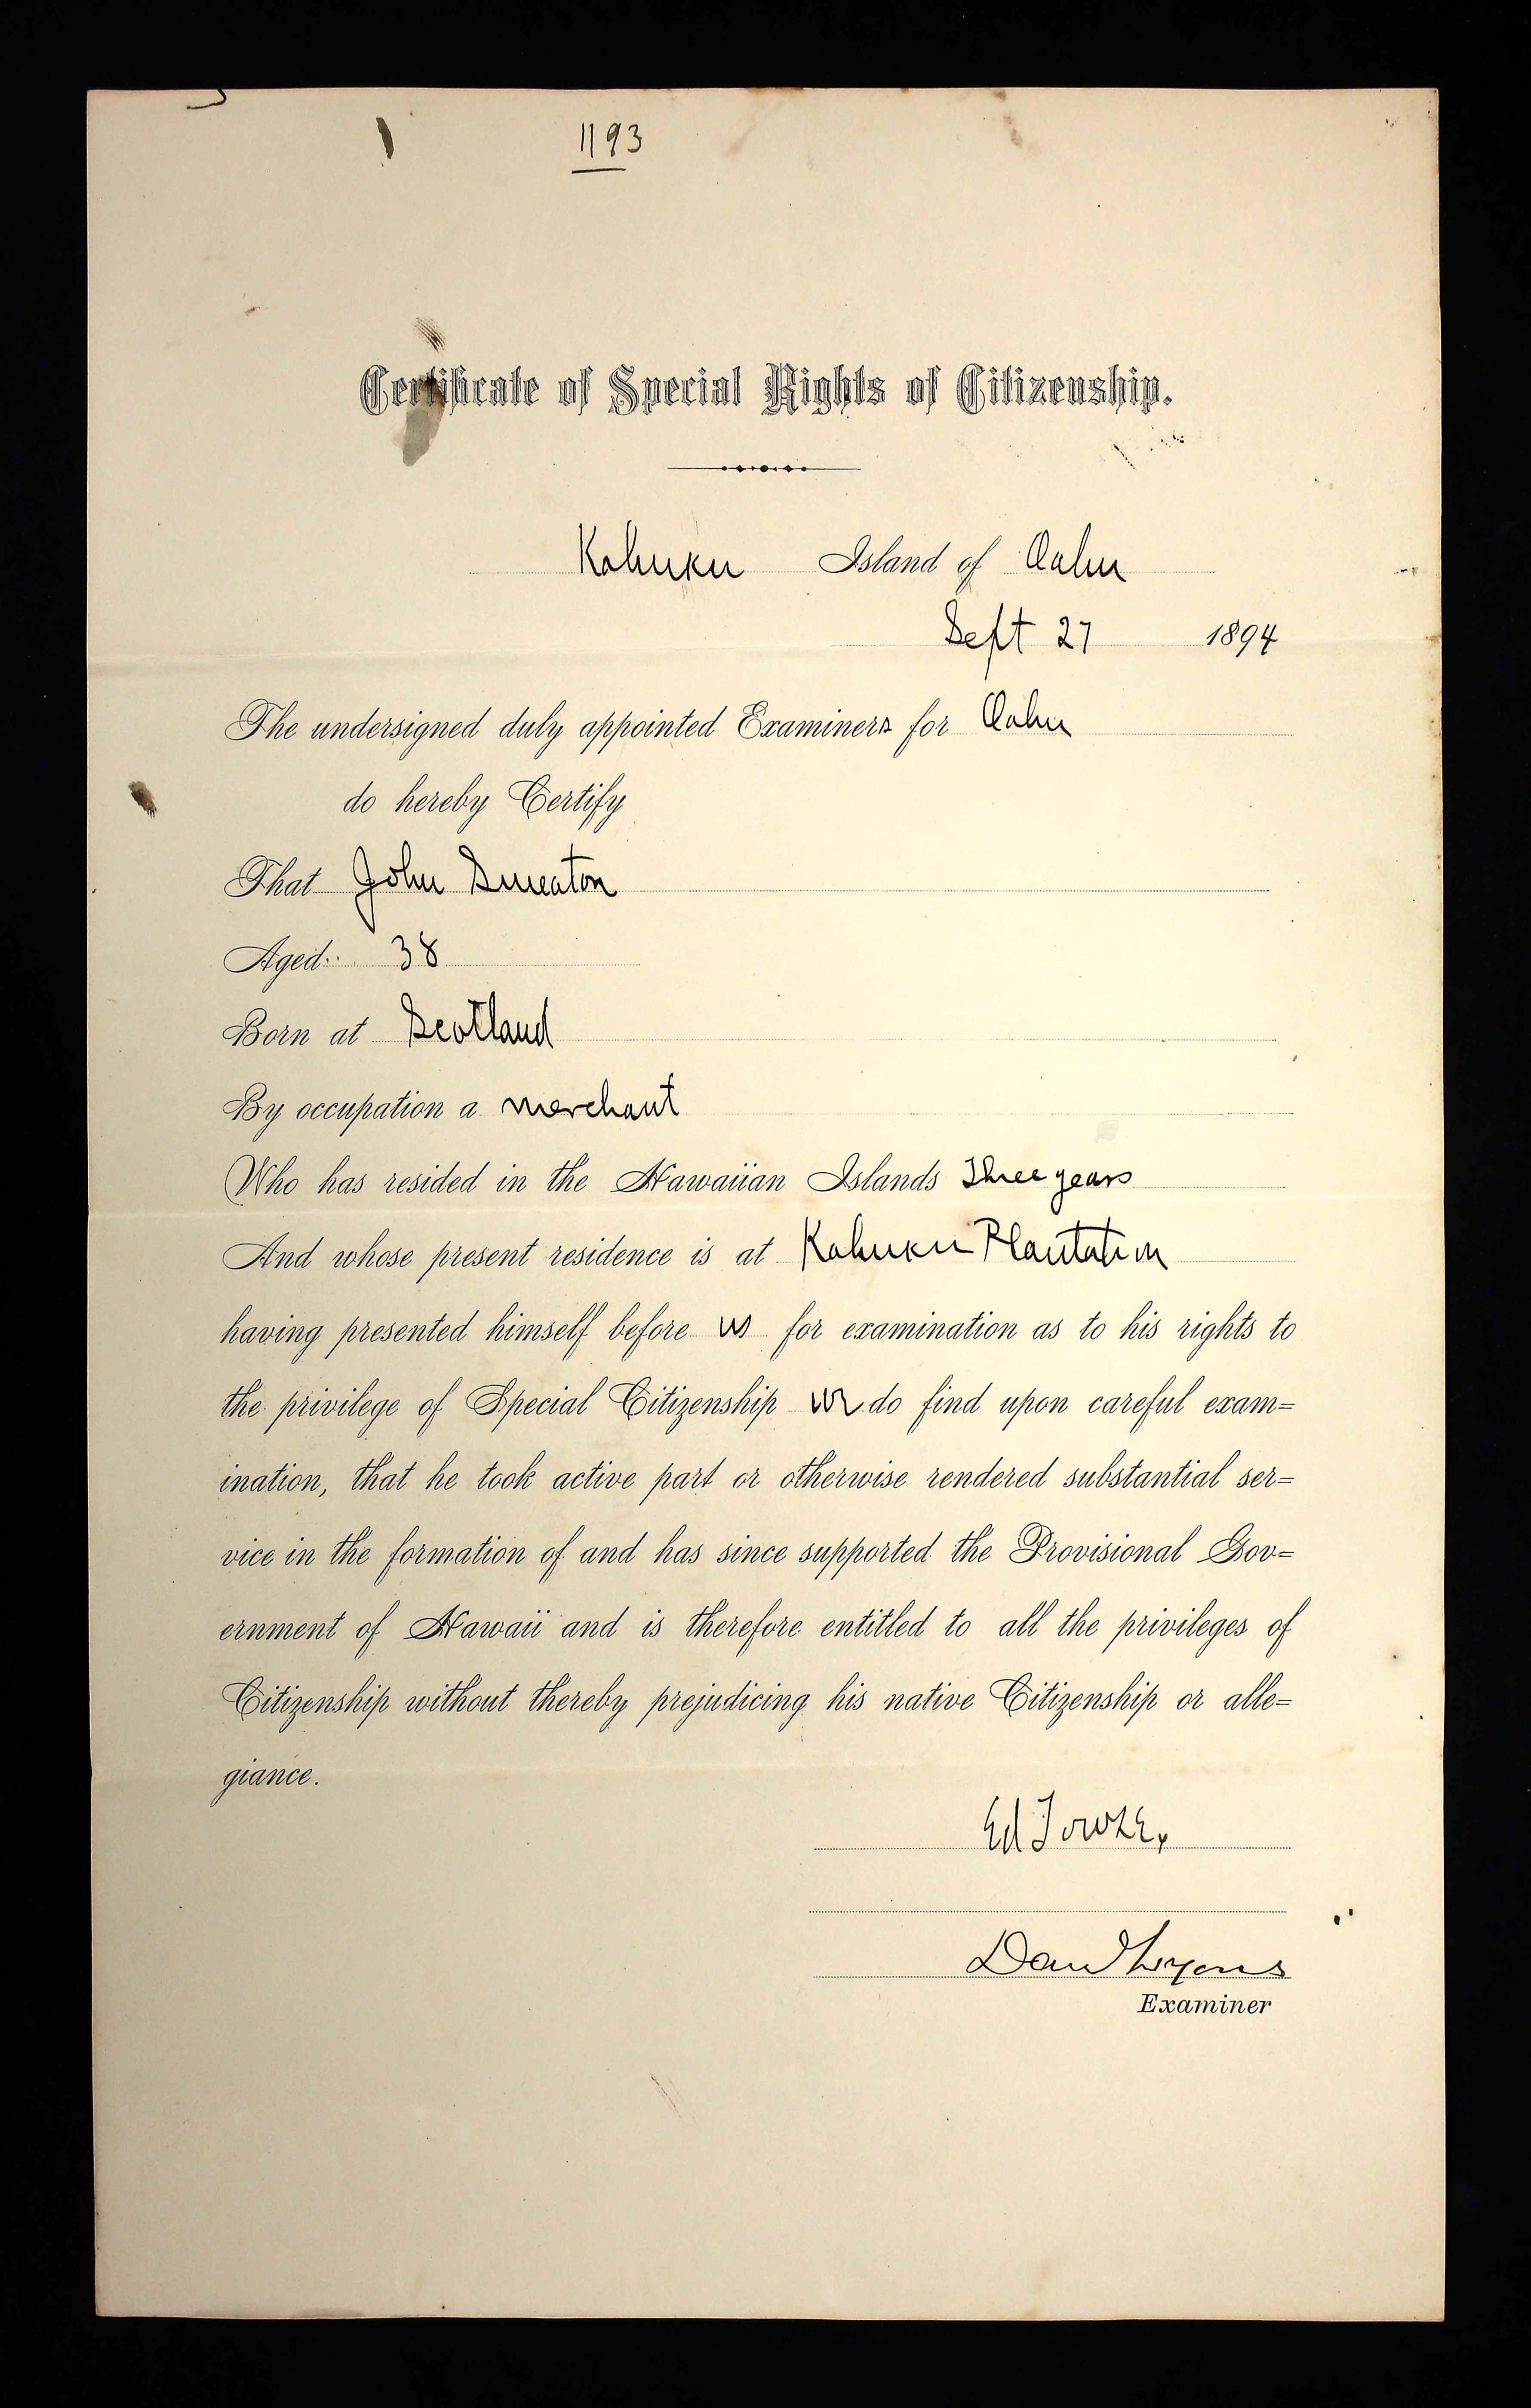 1193
Certificate of Special Rights of Citizenship.
Kahuku Island of Oahu
Sept 27 1894
The undersigned duly appointed Examiners for Oahu
do hereby Certify
That John Smeaton
Aged 38
Born at Scotland
By occupation a merchant
Who has resided in the Hawaiian Islands Three years
And whose present residence is at Kahuku Plantation
having presented himself before us for examination as to his rights to
the privilege of Special Citizenship we do find upon careful exam=
ination, that he took active part or otherwise rendered substantial ser=
vice in the formation of and has since supported the Provisional Gov=
ernment of Hawaii and is therefore entitled to all the privileges of
Citizenship without thereby prejudicing his native Citizenship or alle=
giance.
Ed Towse,
Lyons
Examiner